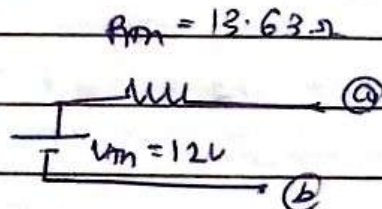 Rth = 13.63Ω
a
Vth = 12V
b